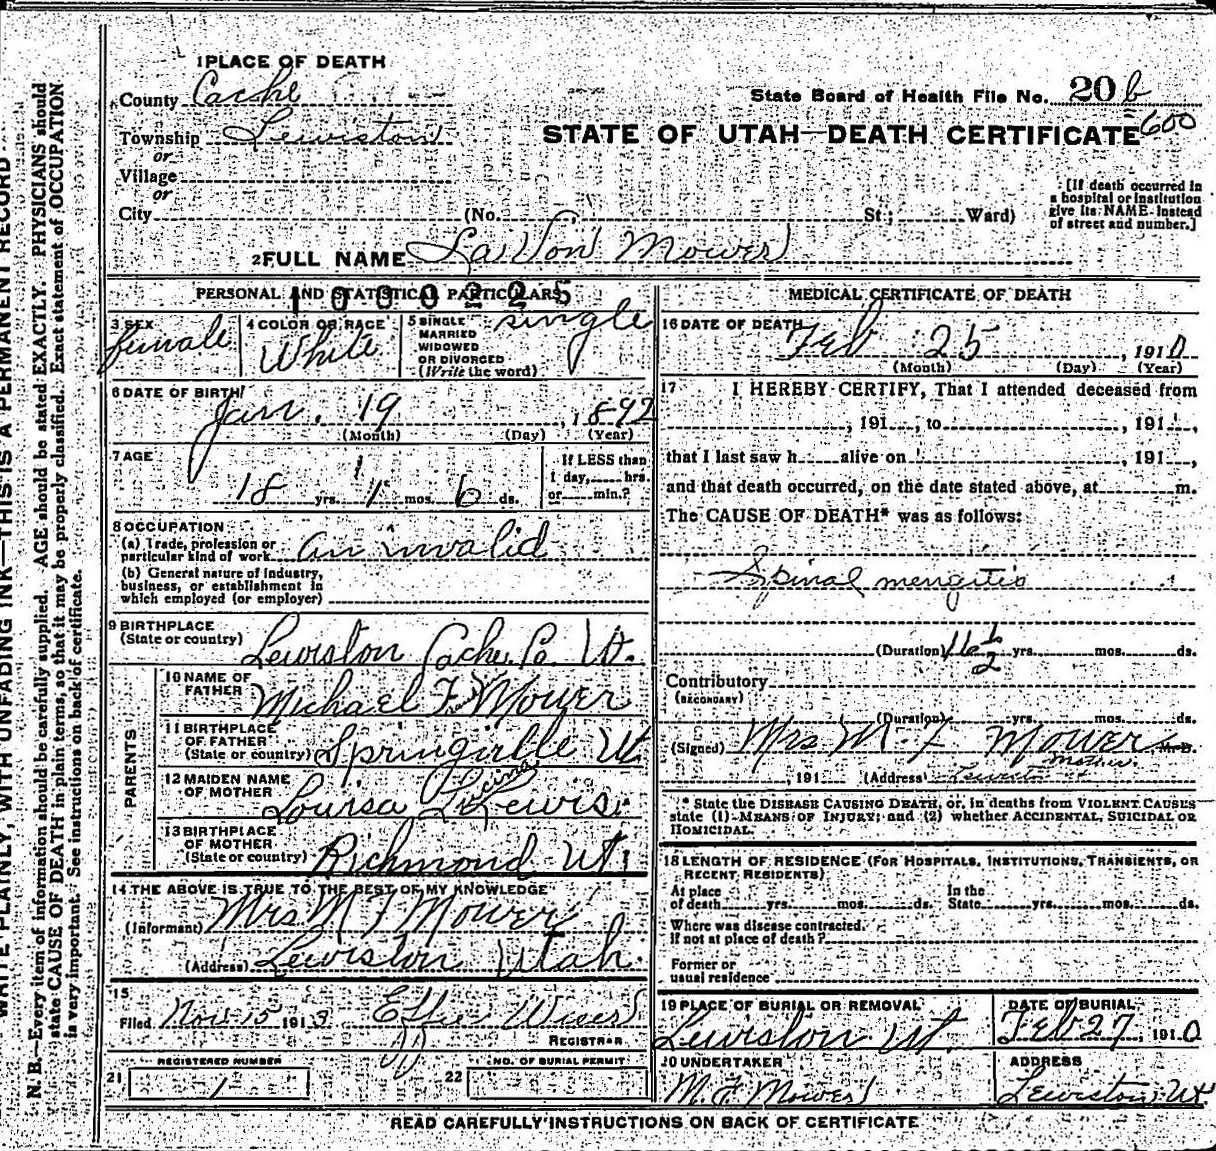 WRITE PLAINLY, WITH UNFADING INK—THIS IS A PERMANENT RECORD
N. B.—Every item of information should be carefully supplied. AGE should be stated EXACTLY. PHYSICIANS should
state CAUSE OF DEATH in plain terms, so that it may be properly classified. Exact statement of OCCUPATION
is very important. See instructions on back of certificate.
1 PLACE OF DEATH
County Cache
Township Lewiston
or
Village
or
City (No. St.; Ward)
State Board of Health File No. 20 b
600
STATE OF UTAH—DEATH CERTIFICATE
[If death occurred in
a hospital or institution
give its NAME instead
of street and number.]
2 FULL NAME LaVon Mower
PERSONAL AND STATISTICAL PARTICULARS
1000225
3 SEX
female
4 COLOR OR RACE
White
5 SINGLE
MARRIED
WIDOWED
OR DIVORCED
(Write the word)
single
6 DATE OF BIRTH
Jan. 19, 1892
(Month) (Day) (Year)
7 AGE
18 yrs. 1 mos. 6 ds.
If LESS than
1 day, hrs.
or min.?
8 OCCUPATION
(a) Trade, profession or
particular kind of work an invalid
(b) General nature of industry,
business, or establishment in
which employed (or employer)
9 BIRTHPLACE
(State or country) Lewiston Cache Co. Ut.
PARENTS
10 NAME OF
FATHER Michael F Mower
11 BIRTHPLACE
OF FATHER
(State or country) Springville Ut
12 MAIDEN NAME
OF MOTHER Louisa Lewis
13 BIRTHPLACE
OF MOTHER
(State or country) Richmond Ut.
14 THE ABOVE IS TRUE TO THE BEST OF MY KNOWLEDGE
(Informant) Mrs M F Mower
(Address) Lewiston Utah.
15
Filed Nov 15 1913 Effie
REGISTRAR
REGISTERED NUMBER
21 1
NO. OF BURIAL PERMIT
22
MEDICAL CERTIFICATE OF DEATH
16 DATE OF DEATH
Feb 25, 1910
(Month) (Day) (Year)
17 I HEREBY CERTIFY, That I attended deceased from
, 191 , to , 191 ,
that I last saw h alive on , 191 ,
and that death occurred, on the date stated above, at m.
The CAUSE OF DEATH* was as follows:
Spinal mengitis
(Duration) 16 1/2 yrs. mos. ds.
Contributory
(SECONDARY)
(Duration) yrs. mos. ds.
(Signed) Mrs M. F Mower M.D.
mother.
, 191 (Address) Lewiston
* State the DISEASE CAUSING DEATH, or, in deaths from VIOLENT CAUSES
state (1) MEANS OF INJURY; and (2) whether ACCIDENTAL, SUICIDAL OR
HOMICIDAL.
18 LENGTH OF RESIDENCE (FOR HOSPITALS, INSTITUTIONS, TRANSIENTS, OR
RECENT RESIDENTS)
At place
of death yrs. mos. ds.
In the
State yrs. mos. ds.
Where was disease contracted,
if not at place of death?
Former or
usual residence
19 PLACE OF BURIAL OR REMOVAL
Lewiston Ut
DATE OF BURIAL
Feb 27, 1910
20 UNDERTAKER
M. F Mower
ADDRESS
Lewiston Ut
READ CAREFULLY INSTRUCTIONS ON BACK OF CERTIFICATE